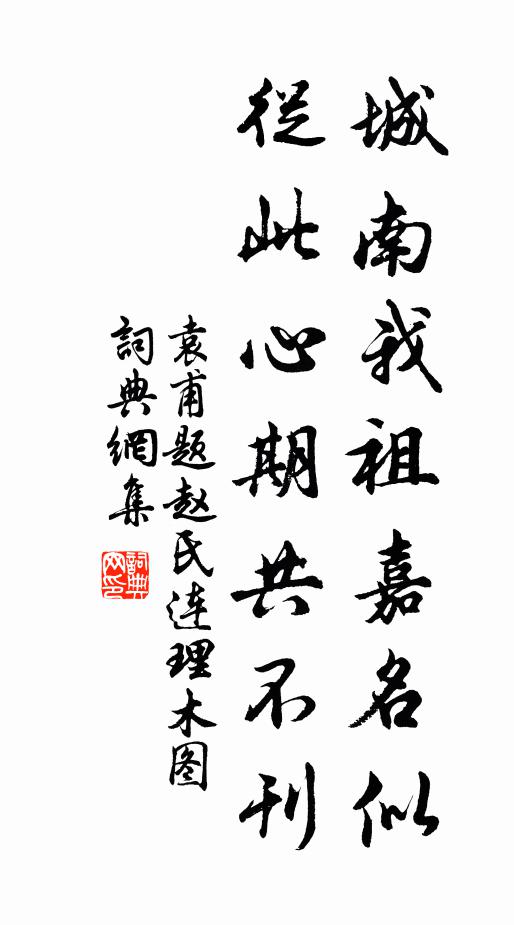 城南我祖嘉名似
從此心期共不刊
袁甫题赵氏连理木图
詞典網集
詞典网印